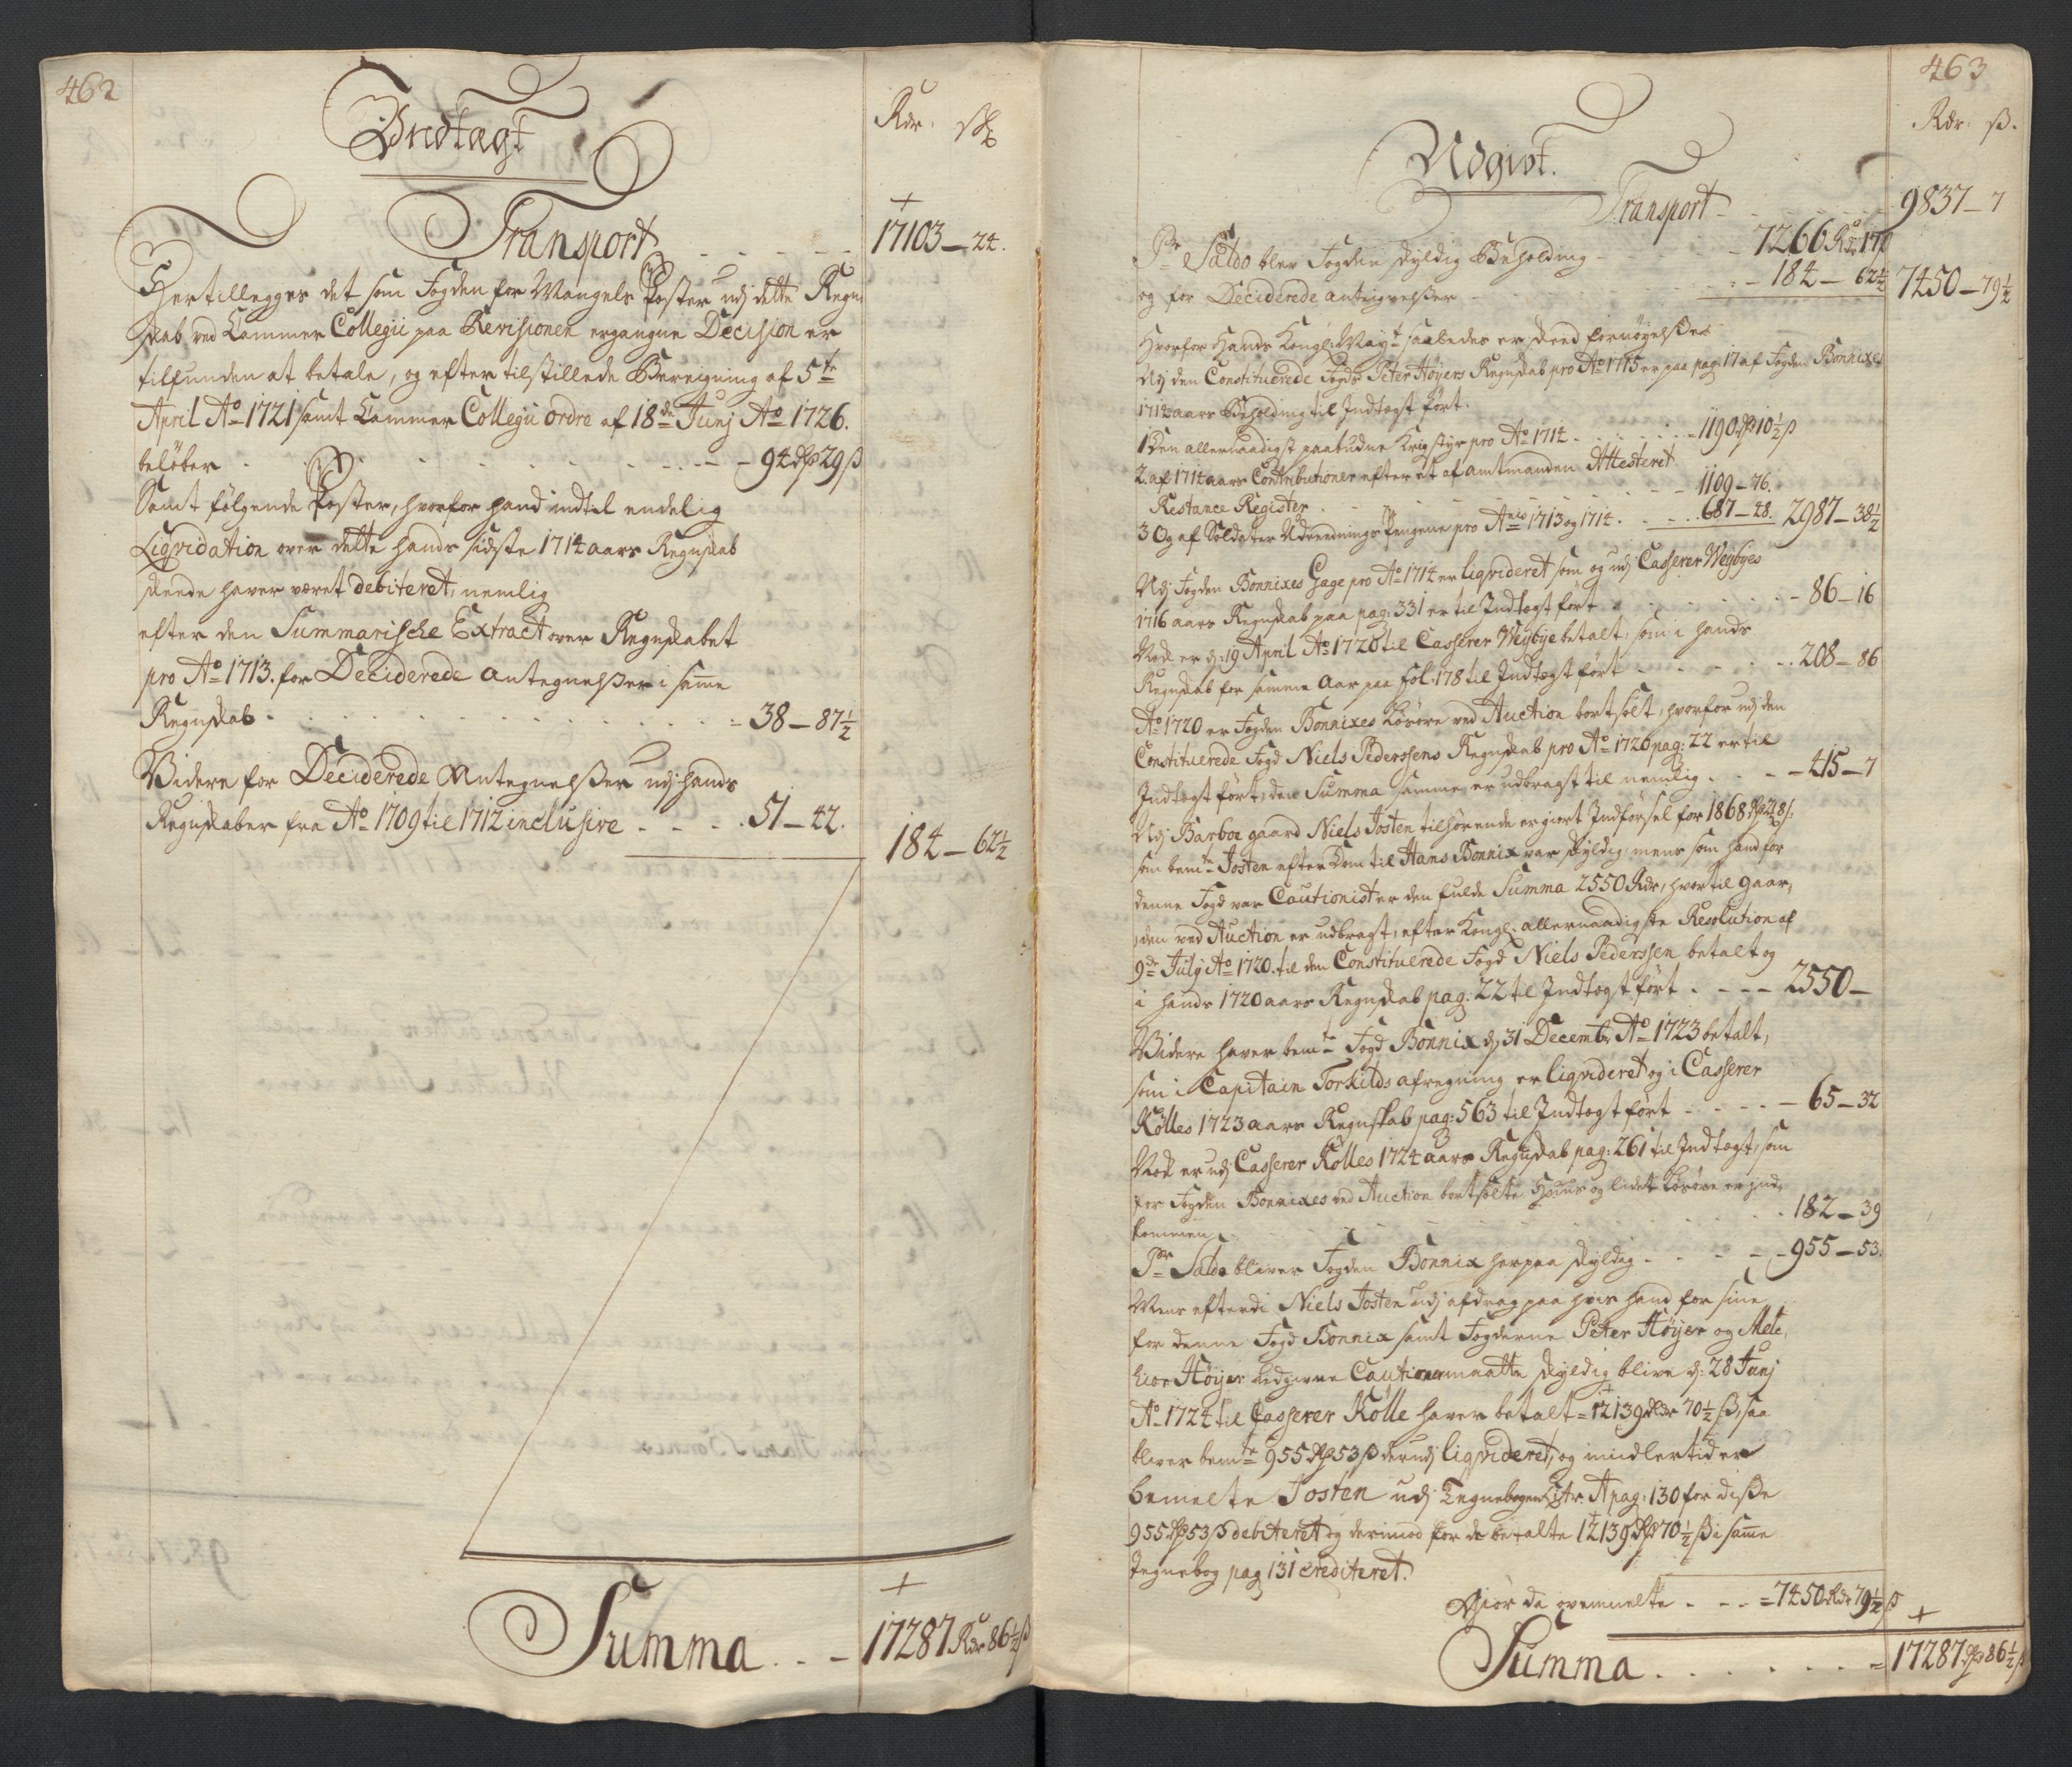 462
Indtægt
Rdr. sk
Transport - - - - - 17103 - 24.
Hertillegges det som Fogden for Mangels Poster udj dette Regn
skab ved Cammer Collegii paa Revisionen ergangne Decision er
tilfunden at betale, og efter tilstillede Beregning af 5te
April Ao 1721 samt Cammer Collegii ordre af 18de Junj Ao 1726.
beløber - - - - - 94 rdr 29 ß
Samt følgende Poster, hvorfor hand indtil endelig
Liqvidation over dette hands sidste 1714 aars Regnskab
skeede haver været debiteret, nemlig
efter den Summarische Extract over Regnskabet
pro Ao 1713. for Deciderede Antegnelßer i samme
Regnskab - - - - - 38 - 87½
Videre for Deciderede Antegnelßer udj hands
Regnskaber fra Ao 1709 til 1712 inclusive - - - 51 - 42.
184 - 62½
Summa - - - 17287 Rdr 86½ ß
463
Rdr. ß.
Udgivt.
Transport - - - - 9837 - 7
Pr Saldo blev Fogden skyldig Beholding - - - 7266 Rdr 17
og for Deciderede Antegnelßer - - - 184 - 62½ 7450 - 79½
Hvorfor Hands Kongl: Mayt saaledes er skeed fornøyelße
Udj den Constituerede Fogds Peter Høyers Regnskab pro Ao 1715 er paa pag: 17 af Fogden Bonnixes
1714 aars Beholding til Indtægt ført.
1 Den allernaadigst paabudne Krigstyr pro Ao 1714 - - - 1190 rdr 10½ ß
2. af 1714 aars Contributioner efter et af Amtmanden Attesteret
Restance Register - - - 1109 - 76.
3 Og af Soldater Udreednings Pengene pro Anis 1713 og 1714 - - - 687 - 48. 2987 - 38½
Udj Fogden Bonnixes Gage pro Ao 1714 er liqvideret som og udj Casserer Weybyes
1716 aars Regnskab paa pag: 331 er til Indtægt ført - - - 86 - 16
Nok er d: 19 April Ao 1720 til Casserer Weybye betalt, som i hands
Regnskab for samme Aar paa fol: 178 til Indtægt ført - - - 208 - 86
Ao 1720 er Fogden Bonnixes Løsøre ved Auction bortsolt, hvorfor udj den
Constituerede Fogd Niels Pederssens Regnskab pro Ao 1720 pag: 22 er til
Indtægt ført, den Summa samme er udbragt til nemlig - - - 415 - 7
Udj Barboe gaard Niels Josten tilhørende er giort Indførsel for 1868 rdr 28 ß:
som bemte Josten efter Dom til Hans Bonnix var skyldig, mens som hand for
denne Fogd var Cautionist er den fulde Summa 2550 Rdr, hvortil gaar,
den ved Auction er udbragt, efter Kongl: allernaadigste Resolution af
9de Julij Ao 1720. til den Constituerede Fogd Niels Pederssen betalt og
i hands 1720 aars Regnskab pag: 22 til Indtægt ført - - - 2550 -
Videre haver bemte Fogd Bonnix d: 31 Decembr Ao 1723 betalt,
som i Capitain Torkilds afregning er liqvideret og i Casserer
Kølles 1723 aars Regnskab pag: 563 til Indtægt ført - - - 65 - 32
Nok er udj Casserer Kølles 1724 aars Regnskab pag: 261 til Indtægt, som
for Fogden Bonnixes ved Auction bortsolte Huus og lidet Løsøre er ind,
kommen - - - 182 - 39
Pr Saldo bliver Fogden Bonnix herpaa skyldig - - - 955 - 53.
Mens efterdi Niels Josten udj afdrag paa hvis hand for sine
for denne Fogd Bonnix samt Fogderne Peter Høyer og Mel
chior Høyer udgivne Cautioner maatte skyldig blive d: 28 Junj
Ao 1724 til Casserer Kølle haver betalt = 12139 rdr 70½ ß, saa
bliver bemte 955 rdr 53 ß derudj liqvideret, og midlertid er
bemelte Josten udj Tegnebogen Litr: A pag: 130 for diße
955 rdr 53 ß debiteret og derimod for de betalte 12139 rdr 70½ ß i samme
Tegnebog pag 131 crediteret.
Giør da ovenmelte - - - = 7450 Rdr 79½ ß
Summa - - - = 17287 rdr 86½ ß